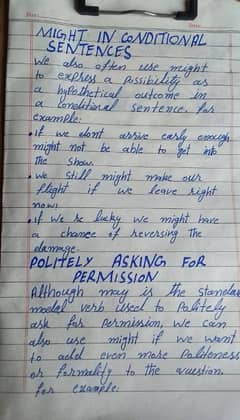 MIGHT IN CONDITIONAL
SENTENCES
We also often use might
to express a possibility as
a hypothetical outcome in
a conditional sentence. for
example:
• if we dont arrive early enough
might not be able to get into
the show.
• we still might make our
flight if we leave right
now!
• if we re lucky we might have
a chance of reversing the
damage.
POLITELY ASKING FOR
PERMISSION
Although may is the standar
modal verb used to Politely
ask for permission, we can
also use might if we want
to add even more Politeness
or formality to the question.
for example: